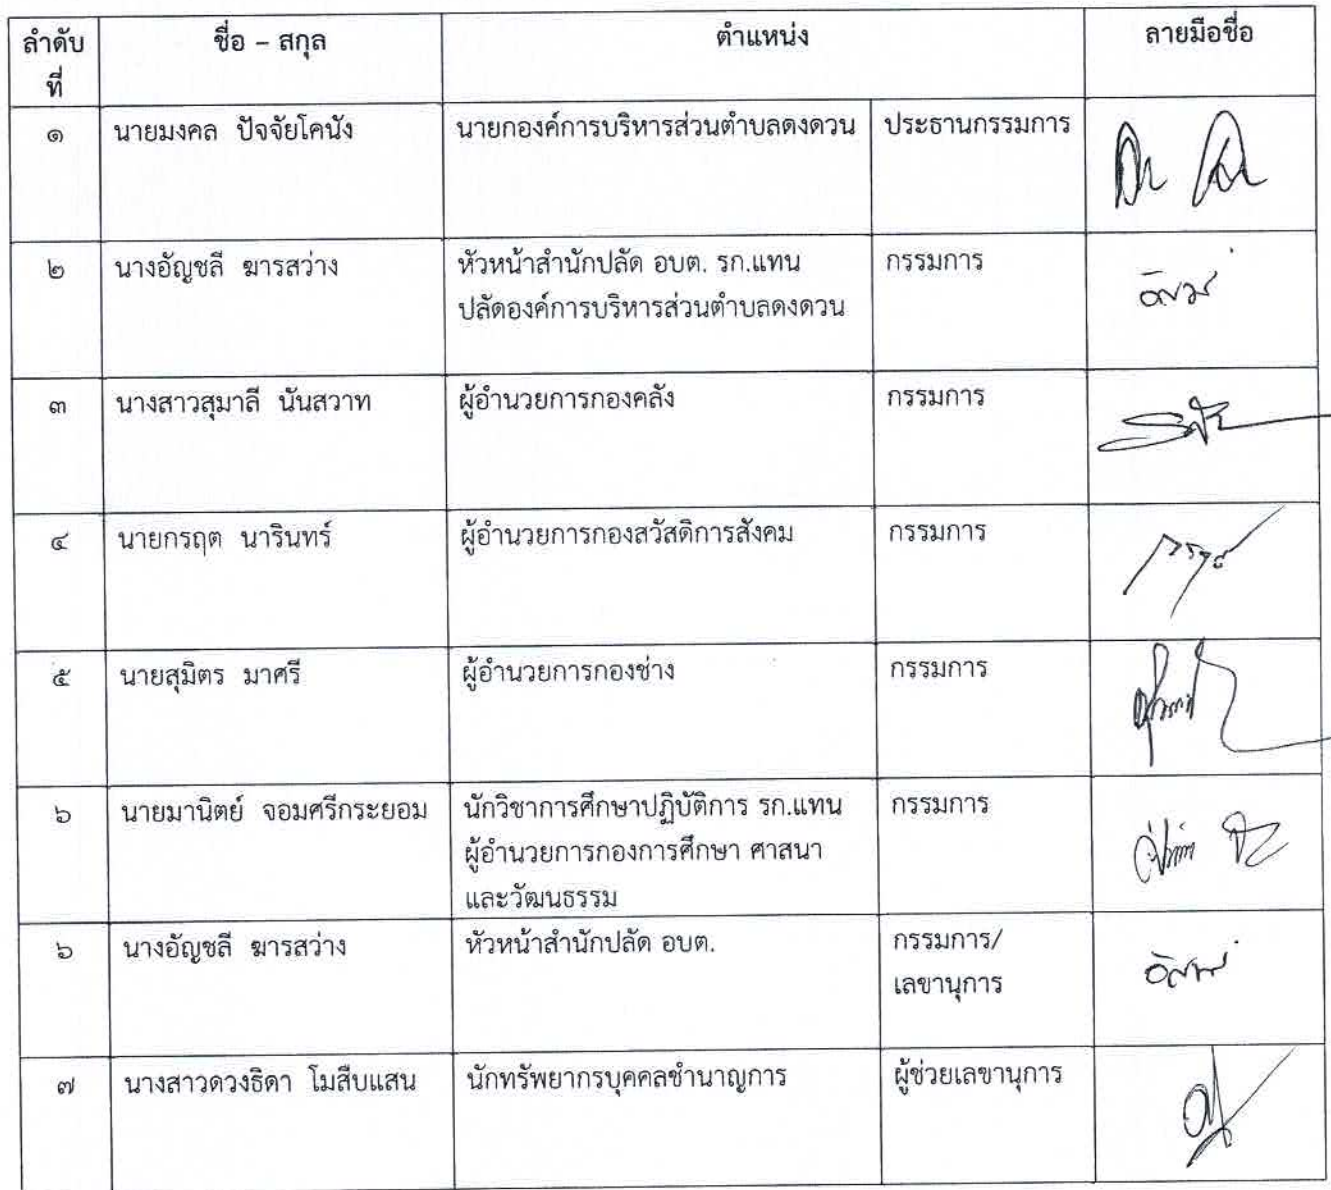 ลำดับ ชื่อ – สกุล ตำแหน่ง ลายมือชื่อ
ที่
๑ นายมงคล ปัจจัยโคนัง นายกองค์การบริหารส่วนตำบลดงดวน ประธานกรรมการ
๒ นางอัญชลี ฆารสว่าง หัวหน้าสำนักปลัด อบต. รก.แทน กรรมการ
ปลัดองค์การบริหารส่วนตำบลดงดวน
๓ นางสาวสุมาลี นันสวาท ผู้อำนวยการกองคลัง กรรมการ
๔ นายกรฤต นารินทร์ ผู้อำนวยการกองสวัสดิการสังคม กรรมการ
๕ นายสุมิตร มาศรี ผู้อำนวยการกองช่าง กรรมการ
๖ นายมานิตย์ จอมศรีกระยอม นักวิชาการศึกษาปฏิบัติการ รก.แทน กรรมการ
ผู้อำนวยการกองการศึกษา ศาสนา
และวัฒนธรรม
๖ นางอัญชลี ฆารสว่าง หัวหน้าสำนักปลัด อบต. กรรมการ/
เลขานุการ
๗ นางสาวดวงธิดา โมสืบแสน นักทรัพยากรบุคคลชำนาญการ ผู้ช่วยเลขานุการ